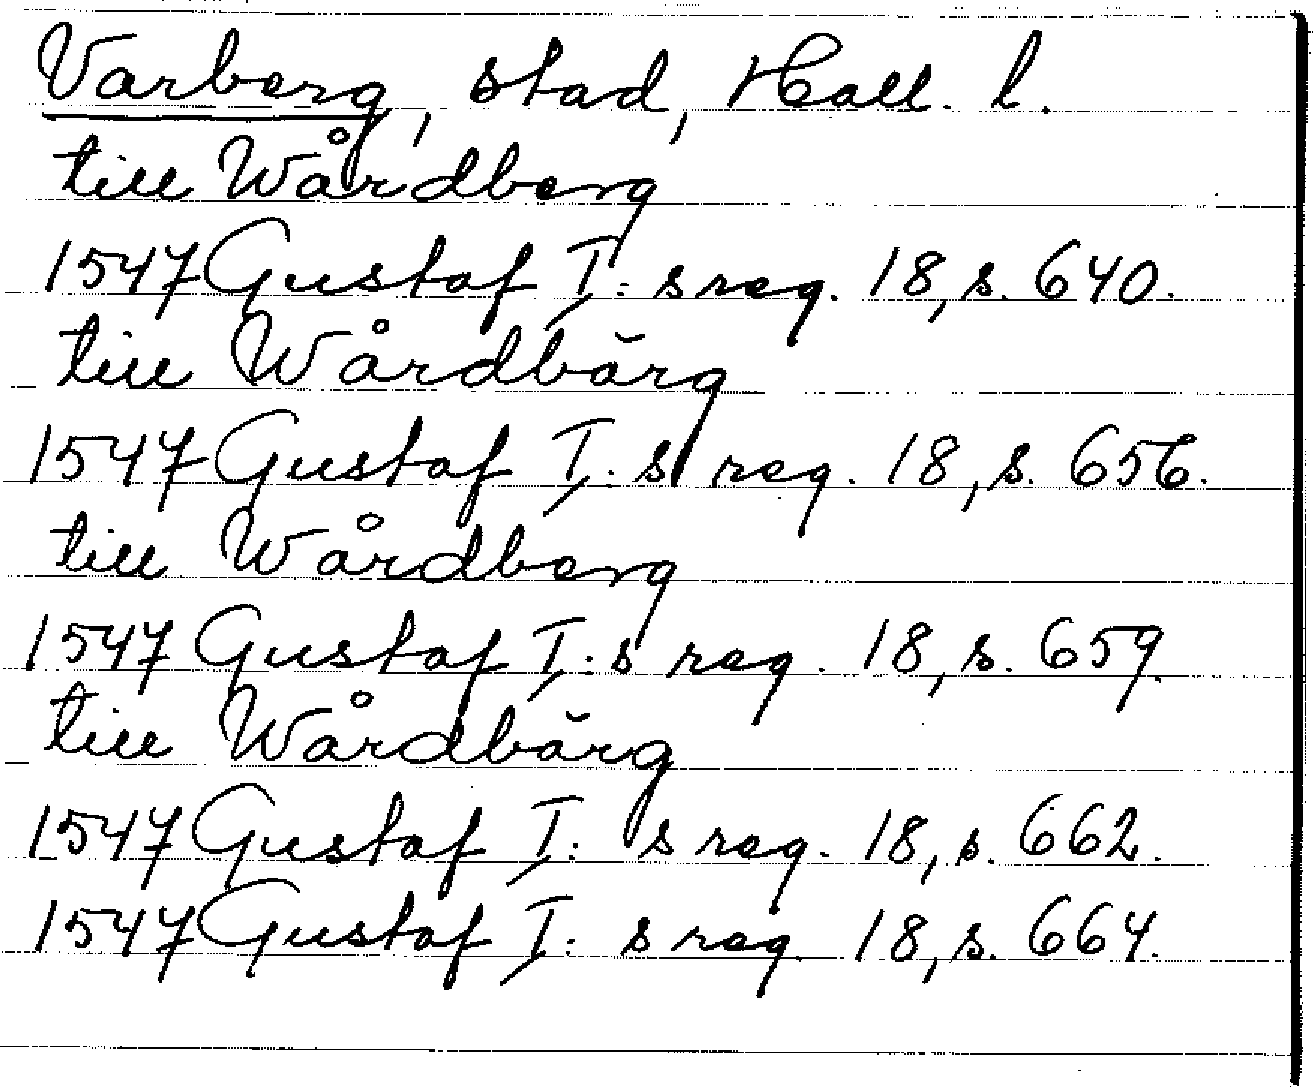 Varberg, stad, Hall. l.
till Wårdberg
1547 Gustaf I:s reg. 18, s. 640.
till Wårdbärg
1547 Gustaf I:s reg. 18, s. 656.
till Wårdberg
1547 Gustaf I:s reg. 18, s. 659.
till Wårdbärg
1547 Gustaf I:s reg. 18, s. 662.
1547 Gustaf I:s reg. 18, s. 664.